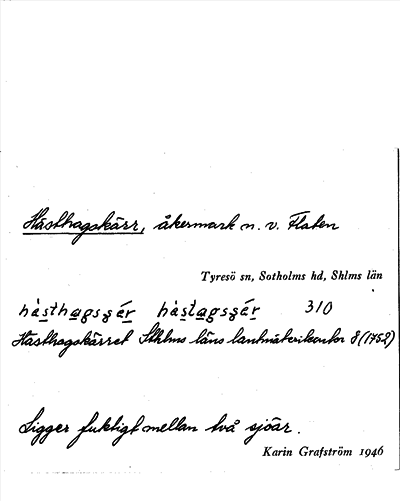 Hästhagskärr, åkermark n. v. Flaten
Tyresö sn, Sotholms hd, Shlms län
hàsthagsʂér hàstagsʂér 310
Hästhagskärret Sthlms läns lantmäterikontor 8 (1752)
Ligger fuktigt mellan två sjöar.
Karin Grafström 1946